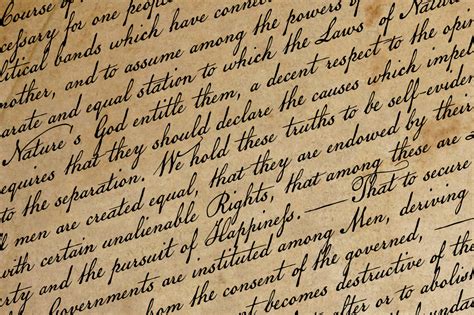 Course of
cessary for one people
litical bands which have connec
nother, and to assume among the powers of
arate and equal station to which the Laws of Nature
Nature's God entitle them, a decent respect to the opi
equires that they should declare the causes which impel
to the separation. We hold these truths to be self-evide
l men are created equal, that they are endowed by their
with certain unalienable Rights, that among these are L
erty and the pursuit of Happiness. — That to secure
Governments are instituted among Men, deriving
from the consent of the governed, —
ent becomes destructive of the
to alter or to abolish